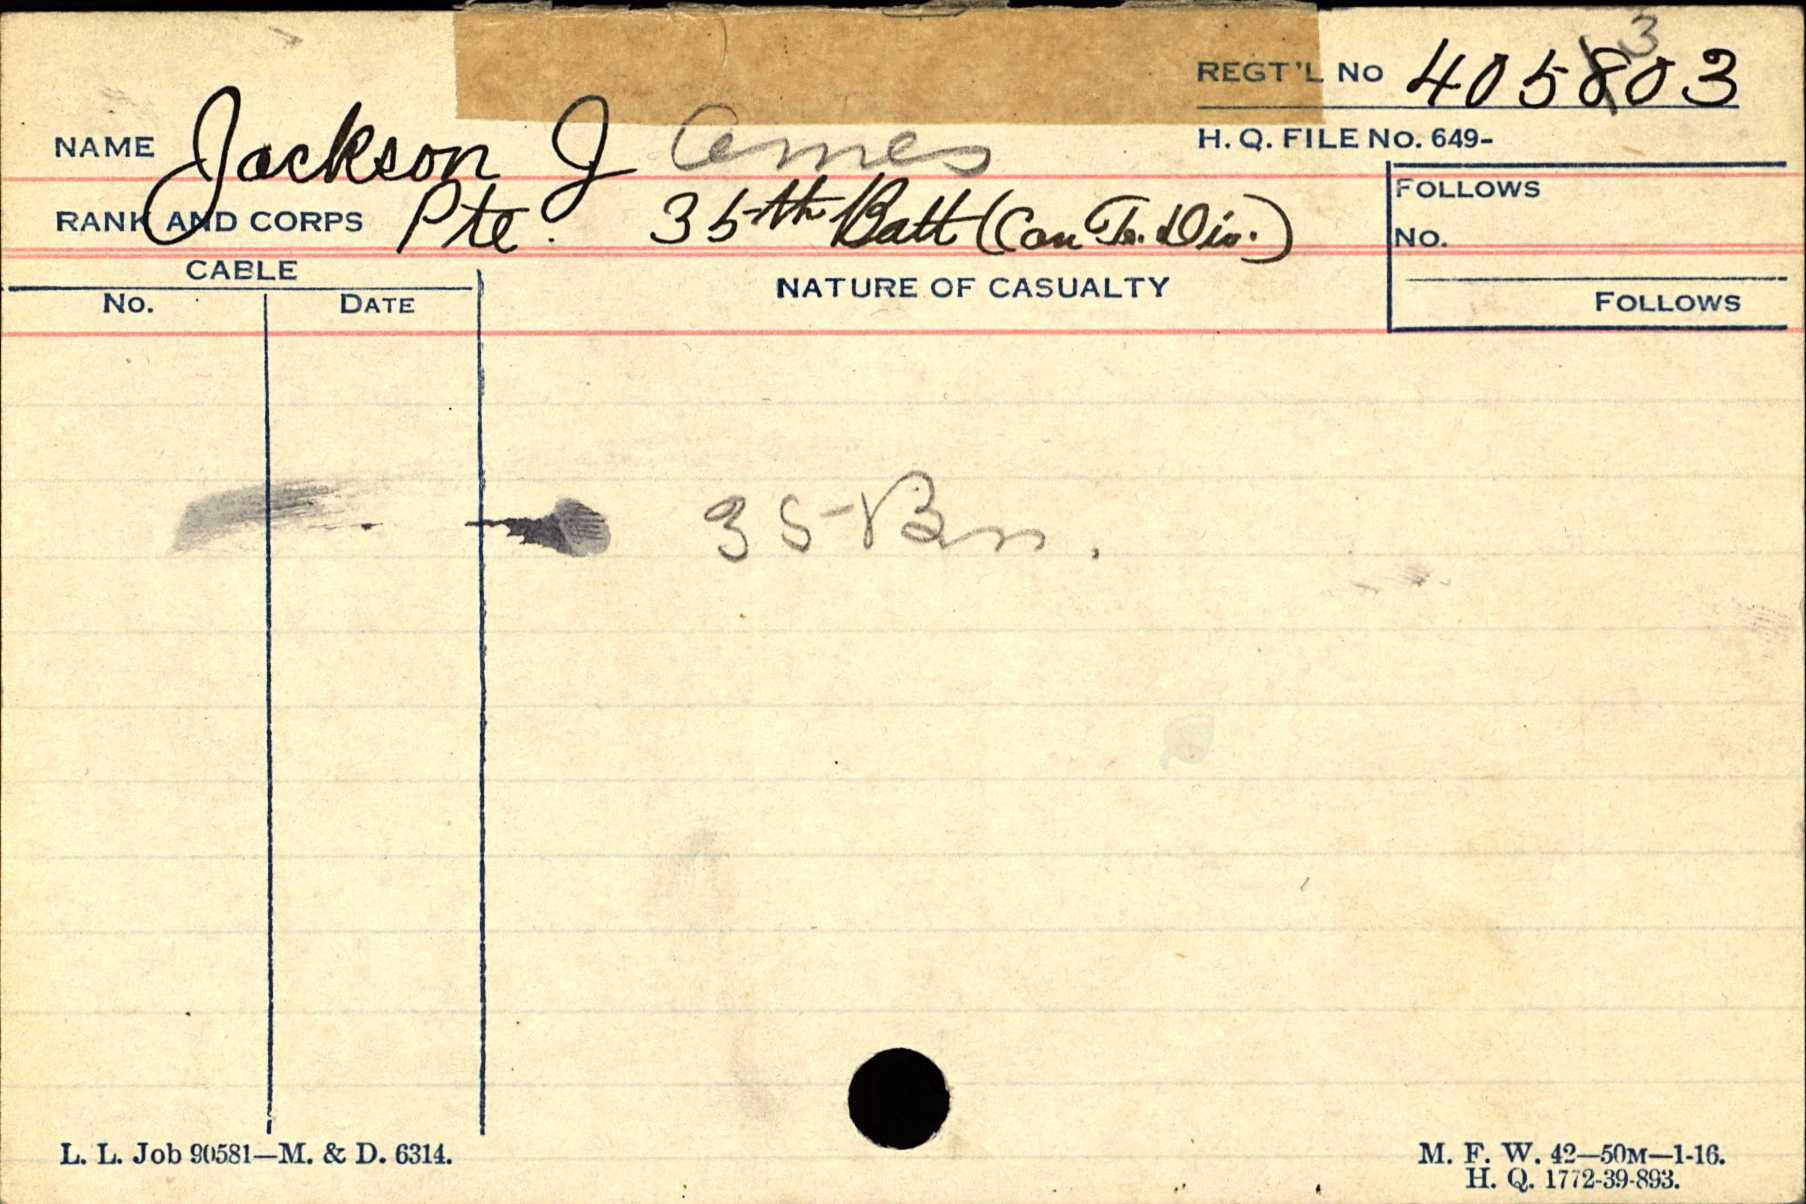 3
REGT'L No 405803
NAME Jackson James
H. Q. FILE No. 649-
RANK AND CORPS Pte. 35th Batt (Can Tr. Div.)
FOLLOWS
No.
FOLLOWS
CABLE
No. DATE
NATURE OF CASUALTY
35 Bn.
L. L. Job 90581—M. & D. 6314.
M. F. W. 42—50M—1-16.
H. Q. 1772-39-893.